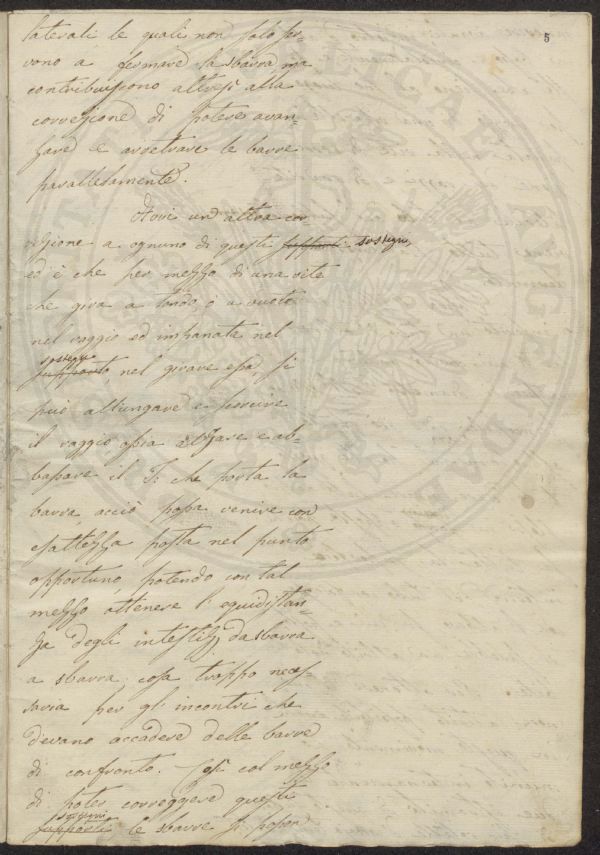 5
laterali le quali non solo ser-
vono a fermare la sbarra, ma
contribuiscono altresì alla
correzione di potere avan-
zare e arretrare le barre
parallelamente.
Avvi un'altra cor-
rezione a ognuno di questi supporti sostegni,
ed è che per mezzo di una vite
che gira a tondo e a vuoto
nel raggio ed impanata nel
sostegno
supporto, nel girare essa, si
può allungare e scorcire
il raggio ossia alzare e ab-
bassare il T: che porta la
barra, acciò possa venire con
esattezza posta nel punto
opportuno, potendo con tal
mezzo ottenere l'equidistan-
za degli intestizj da sbarra
a sbarra; cosa troppo neces-
saria per gl'incontri che
devano accadere delle barre
di confronto. Così col mezzo
di poter correggere questi
sostegni
supporti le sbarre si posson